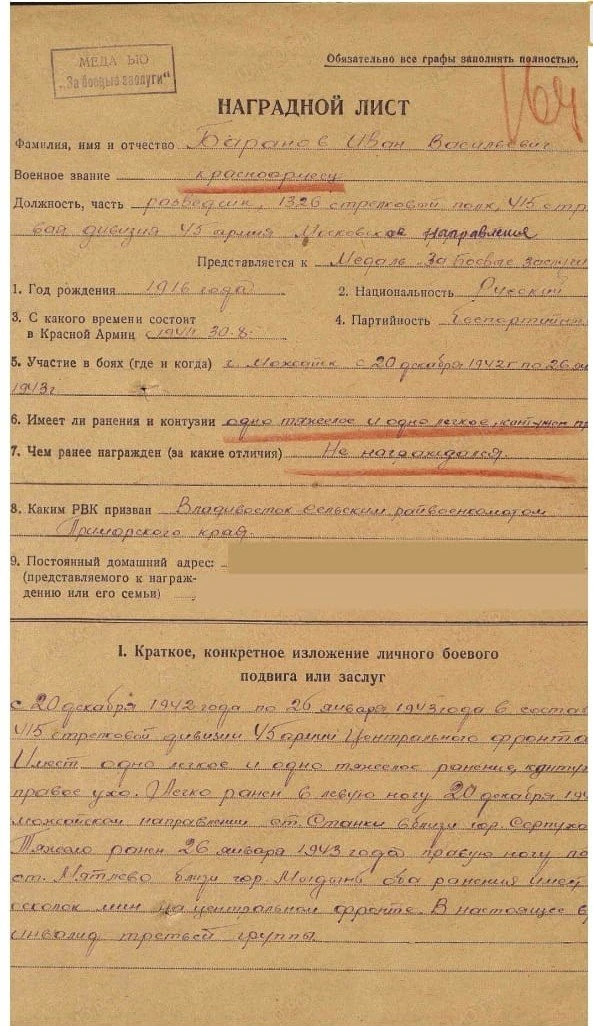 МЕДАЛЬЮ
„За боевые заслуги“
Обязательно все графы заполнять полностью.
НАГРАДНОЙ ЛИСТ
Фамилия, имя и отчество Баранов Иван Васильевич
Военное звание красноармеец
Должность, часть разведчик, 1326 стрелковый полк, 415 стр
вой дивизия 45 армия Московское направление
Представляется к Медаль За боевые заслуги
1. Год рождения 1916 года 2. Национальность Русский
3. С какого времени состоит
в Красной Армии с 1941 30-8- 4. Партийность
5. Участие в боях (где и когда) г. с 20 декабря 1942 г по 26 ян
1943 г
6. Имеет ли ранения и контузии одно тяжелое и одно легкое, пр
7. Чем ранее награжден (за какие отличия) Не награждался.
8. Каким РВК призван Владивосток сельским райвоенкоматом
Приморского края.
9. Постоянный домашний адрес:
(представляемого к награж-
дению или его семьи)
I. Краткое, конкретное изложение личного боевого
подвига или заслуг
с 20 декабря 1942 года по 26 января 1943 года в состав
415 стрелковой дивизии 45 армии Центрального фронта
Имеет одно легкое и одно тяжелое ранение,
правое ухо. Легко ранен в левую ногу 20 декабря 194
можайском направлении ст. Станки вблизи гор. Серпухо
Тяжело ранен 26 января 1943 года правую ногу по
ст. Мятлево близи гор. оба ранения имеет
осколок мин на центральном фронте. В настоящее в
инвалид третьей группы.